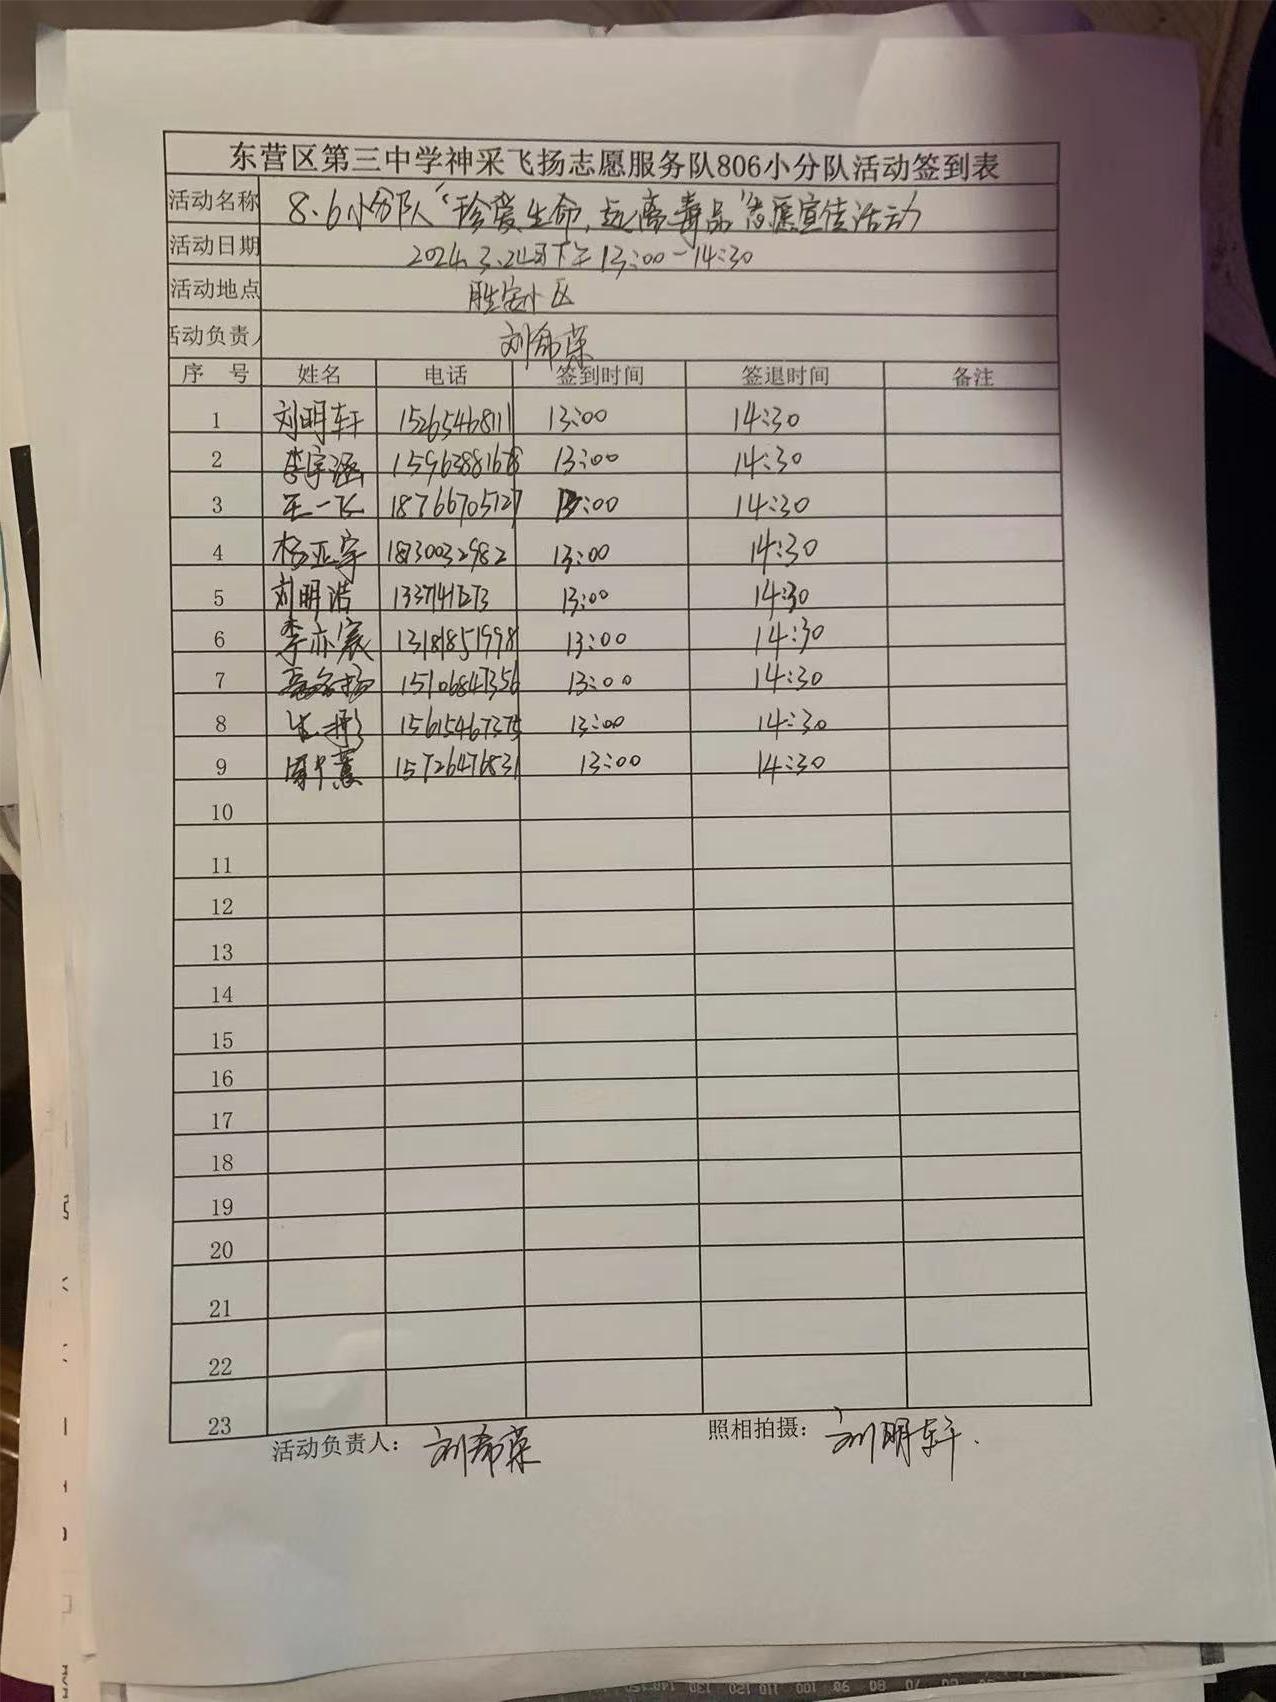 东营区第三中学神采飞扬志愿服务队806小分队活动签到表
活动名称 8.6小分队“珍爱生命,远离毒品”志愿宣传活动
活动日期 2024.3.24日下午13:00-14:30
活动地点 胜宏小区
活动负责人 刘希荣
序 号 姓名 电话 签到时间 签退时间 备注
1 刘明轩 15265468111 13:00 14:30
2 李宇涵 15963881678 13:00 14:30
3 王一飞 18766705727 13:00 14:30
4 杨亚宇 13:00 14:30
5 刘明浩 13:00 14:30
6 李亦宸 13181851998 13:00 14:30
7 15106847356 13:00 14:30
8 15615467375 13:00 14:30
9 15726476831 13:00 14:30
10
11
12
13
14
15
16
17
18
19
20
21
22
23
活动负责人: 刘希荣 照相拍摄: 刘明轩.